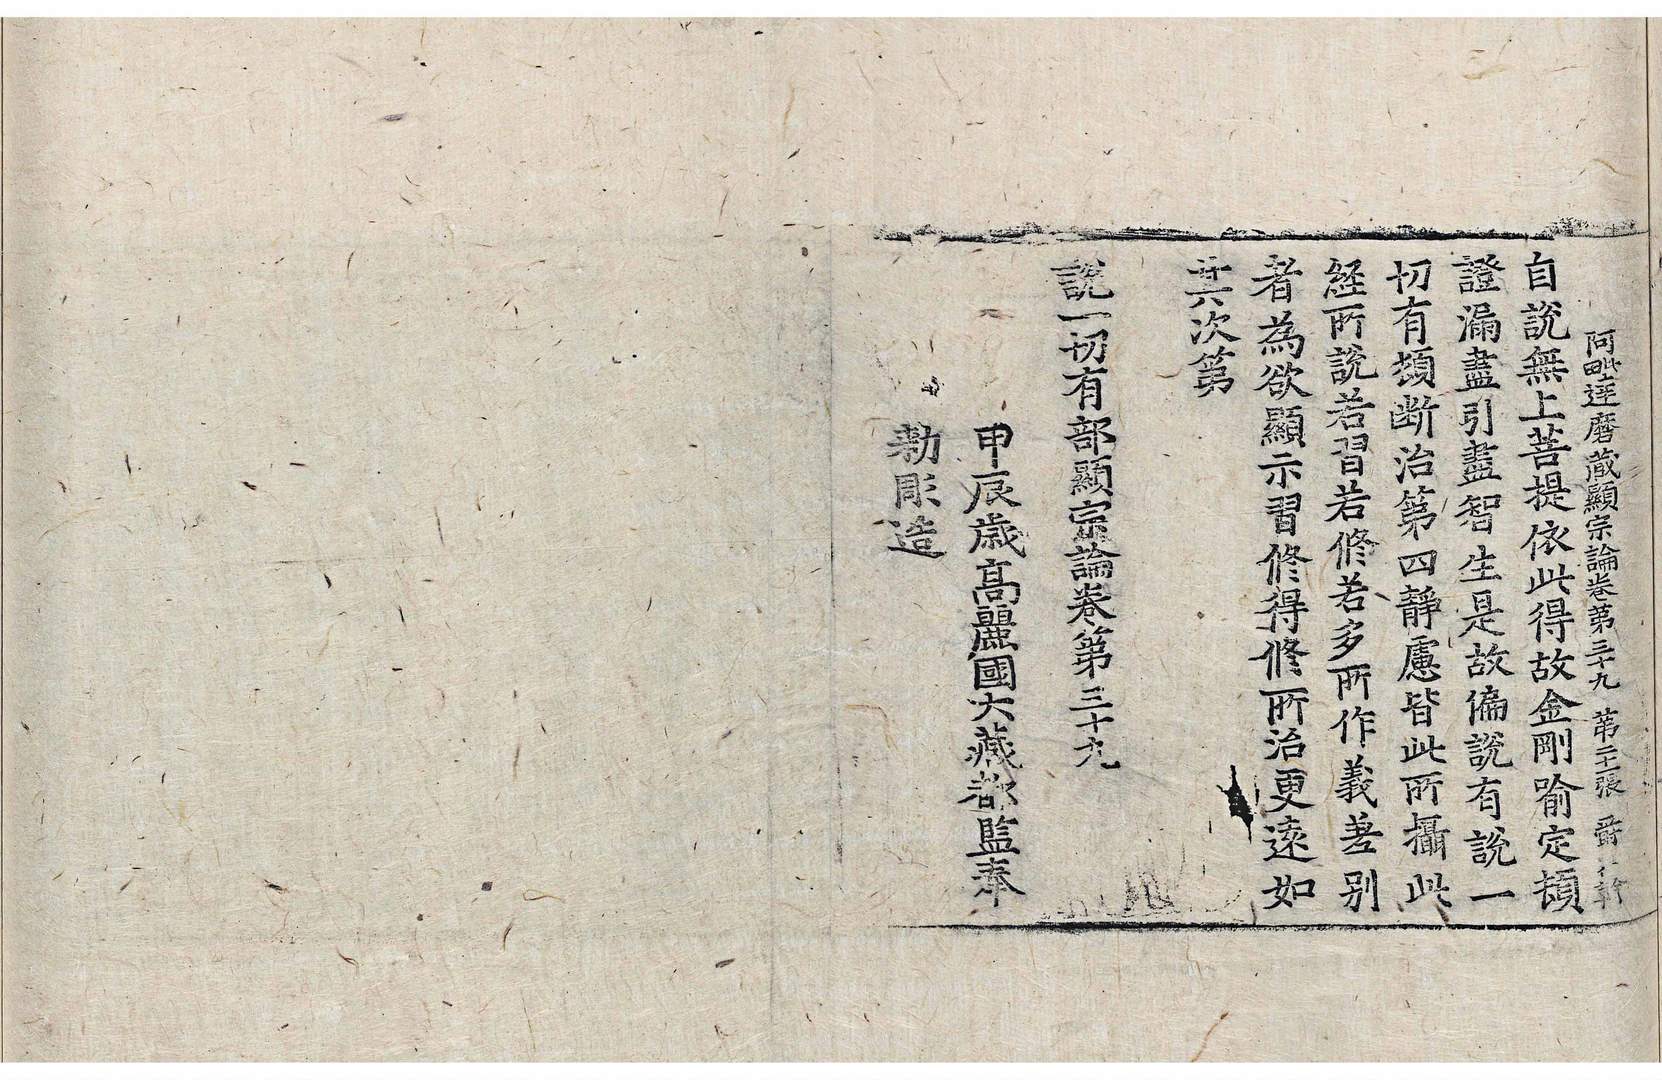 阿毗達磨藏顯宗論卷第三十九 第二十一張
自說無上菩提依此得故金剛喻定頓
證漏盡引盡智生是故偏說有說一
切有頓斷治第四靜慮皆此所攝此
經所說若習若修若多所作義差別
者為欲顯示習修得修所治更遠如
其六次第
說一切有部顯宗論卷第三十九
甲辰歲高麗國大藏都監奉
勅彫造